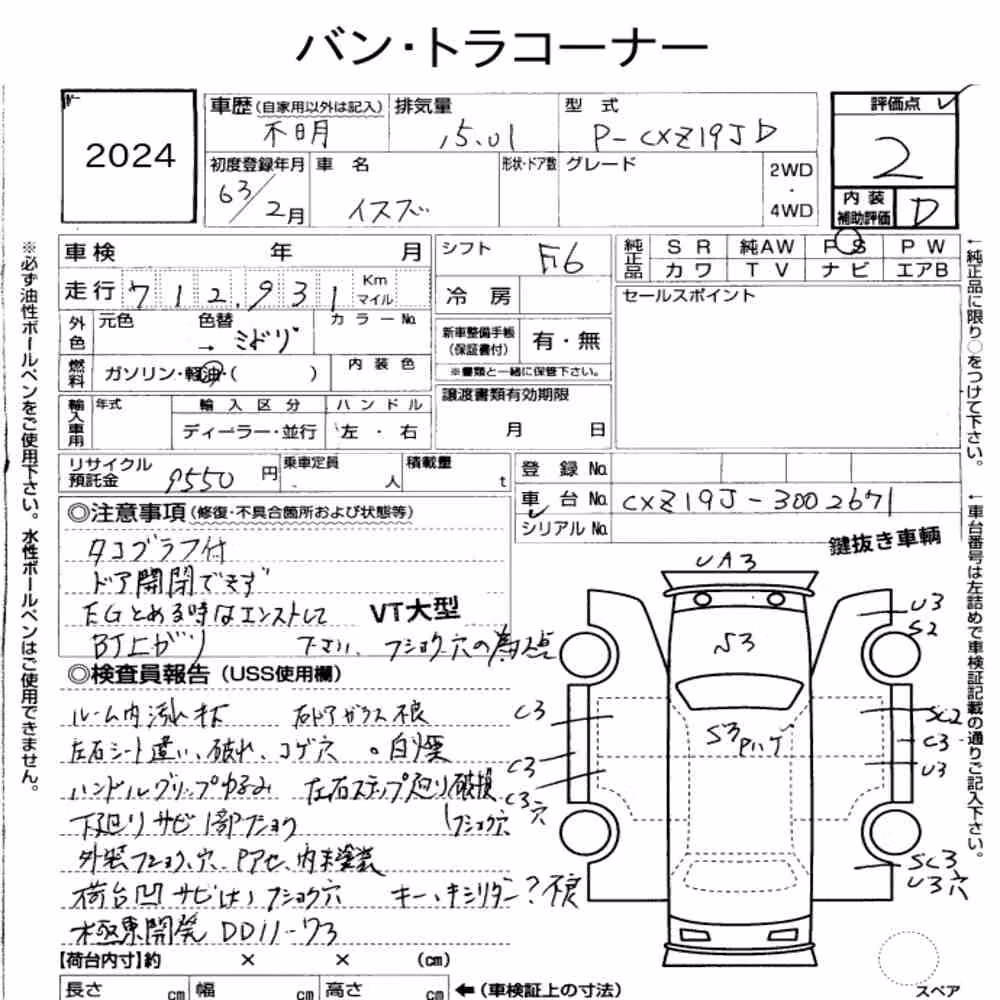 バン・トラコーナー
2024
車歴(自家用以外は記入)
不明
排気量
15.01
型式
P-CXZ19JD
評価点
2
初度登録年月
63/2月
車名
イスズ
形状・ドア数
グレード
2WD
・
4WD
内装
補助評価
D
車検 年 月
シフト
F6
純正品
SR 純AW PS PW
カワ TV ナビ エアB
走行 712,931
Km
マイル
冷房
セールスポイント
外色
元色 色替
→ ミドリ
カラーNo.
新車整備手帳
(保証書付)
有・無
※書類と一緒に保管下さい。
燃料
ガソリン・軽油・( )
内装色
譲渡書類有効期限
月 日
輸入車用
年式
輸入区分
ディーラー・並行
ハンドル
左・右
リサイクル
預託金
9550 円
乗車定員
人
積載量
t
登録No.
車台No. CXZ19J-3002671
シリアルNo.
◎注意事項(修復・不具合箇所および状態等)
タコグラフ付
ドア開閉できず
EGとめる時はエンストして
下さい
BJ上がり
VT大型
鍵抜き車輌
◎検査員報告(USS使用欄)
ルーム内汚れ 右ドアガラス不良
左右シート違い、破れ、コゲ穴 。白煙
ハンドルグリップゆるみ 左右ステップ廻り破損
フショク穴
下廻りサビ1部フショク
外装フショク、穴、Pアセ、内未塗装
荷台凹サビ フショク穴 キーキシリダー?不良
極東開発 DD11-73
UA3
S3
S3
Pハゲ
U3
S2
C3
C3
C3
穴
SC2
C3
U3
SC3
U3穴
【荷台内寸】約 × × (cm)
長さ cm 幅 cm 高さ cm
←(車検証上の寸法)
スペア
※必ず油性ボールペンをご使用下さい。水性ボールペンはご使用できません。
←純正品に限り○をつけて下さい。
←車台番号は左詰めで車検証記載の通りご記入下さい。